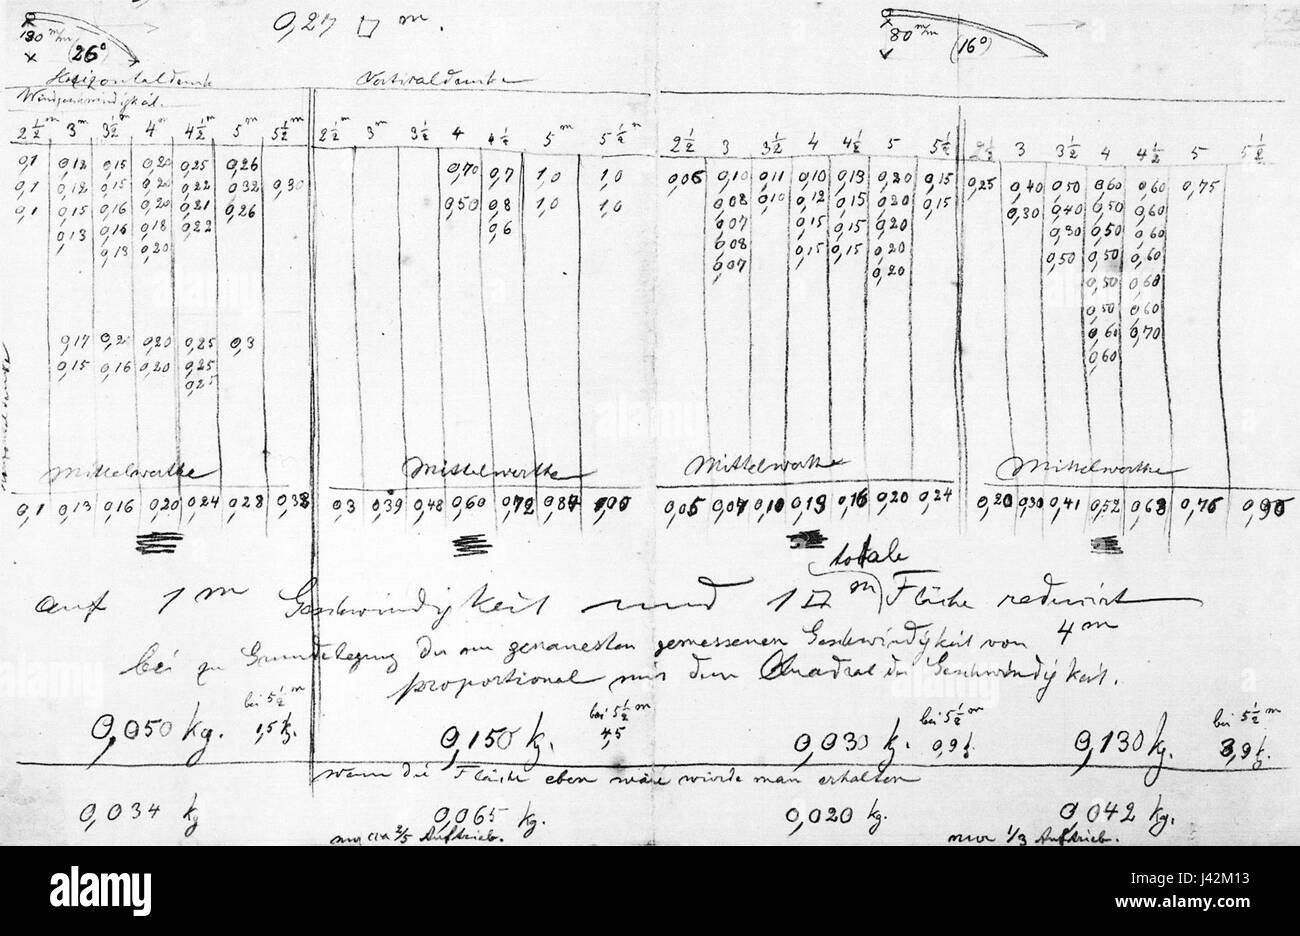 130 m/m (26°) 0,27 □ m. 80 m/m (16°)
Horizontaldrucke Vertikaldrucke
Windgeschwindigkeit
2½ m 3 m 3½ m 4 m 4½ m 5 m 5½ m 2½ m 3 m 3½ 4 4½ 5 m 5½ m 2½ 3 3½ 4 4½ 5 5½ 2½ 3 3½ 4 4½ 5 5½
0,1 0,12 0,15 0,20 0,25 0,26 0,70 0,7 1,0 1,0 0,05 0,10 0,11 0,10 0,13 0,20 0,15 0,25 0,40 0,50 0,60 0,60 0,75
0,1 0,12 0,15 0,20 0,22 0,32 0,30 0,50 0,8 1,0 1,0 0,08 0,10 0,12 0,15 0,20 0,15 0,30 0,40 0,50 0,60
0,1 0,15 0,16 0,20 0,21 0,26 0,6 0,07 0,15 0,15 0,20 0,30 0,50 0,60
0,13 0,16 0,18 0,22 0,08 0,15 0,15 0,20 0,50 0,50 0,60
0,13 0,20 0,07 0,20 0,50 0,60
0,50 0,60
0,17 0,20 0,20 0,25 0,3 0,60 0,70
0,15 0,16 0,20 0,25 0,60
0,25
Mittelwerthe Mittelwerthe Mittelwerthe Mittelwerthe
0,1 0,13 0,16 0,20 0,24 0,28 0,33 0,3 0,39 0,48 0,60 0,72 0,87 1,00 0,05 0,07 0,10 0,13 0,16 0,20 0,24 0,20 0,30 0,41 0,52 0,63 0,76 0,90
totale
auf 1 m Geschwindigkeit und 1 □ m Fläche reducirt
bei zu Grundelegung der am genauesten gemessenen Geschwindigkeit von 4 m
proportional mit dem Quadrat der Geschwindigkeit.
0,050 kg. bei 5½ m 1,5 k. 0,150 k. bei 5½ m 4,5 0,030 k. bei 5½ m 0,9 k. 0,130 k. bei 5½ m 3,9 k.
wenn die Fläche eben wäre würde man erhalten
0,034 kg 0,065 kg. 0,020 kg. 0,042 kg.
nur ca 2/5 Auftrieb. nur 1/3 Auftrieb.
alamy
a
alamy
Image ID: J42M13
www.alamy.com